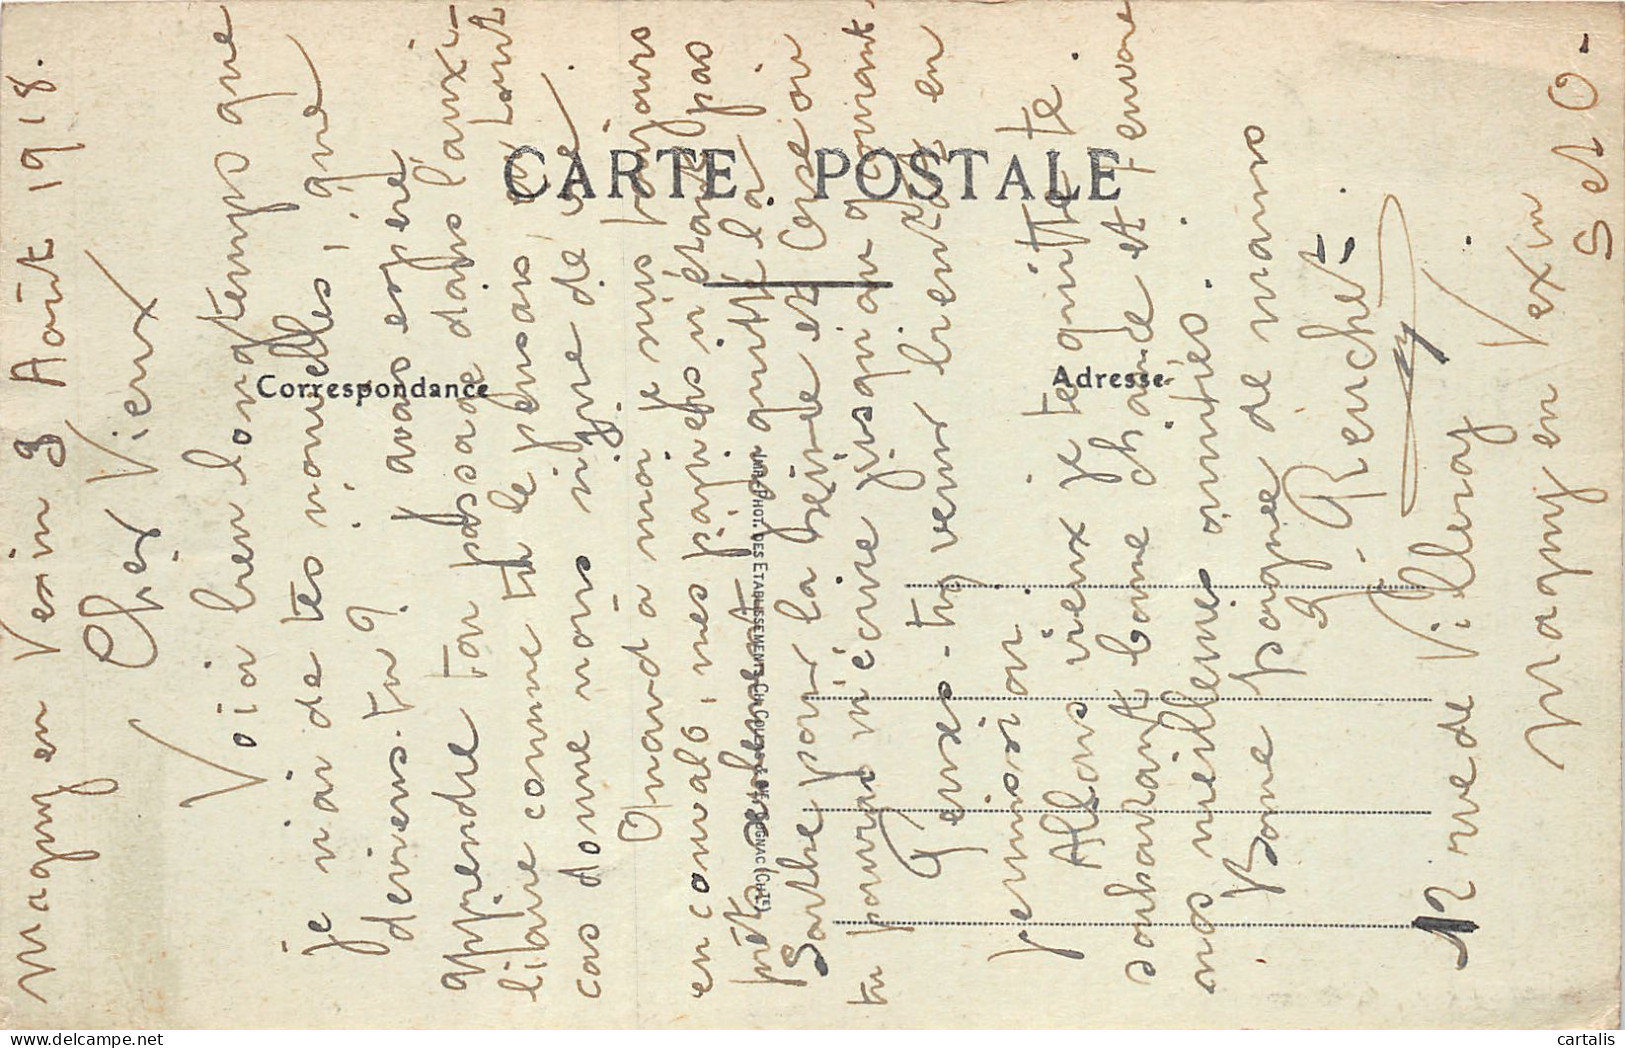 Magny en Vexin 3 Août 1918.
Cher Vieux
Voici bien longtemps que
je n'ai de tes nouvelles, que
deviens-tu ? J'avais espéré
apprendre ton passage dans l'auxi-
liaire comme tu le pensais, en tout
cas donne nous signe de vie.
Quand à moi je suis toujours
en convalo, mes papiers n'étant pas
prêts, seulement j'ai quitté la
Sarthe pour la Seine et Oise où
tu pourras m'écrire jusqu'au 9 courant.
Y vas-tu venir bientôt en
permission
Allons vieux je te quitte te
souhaitant bonne chance et t'envoie
nos meilleures amitiés.
Bonne poignée de mains
G. Renchet
12 rue de Villeray.
Magny en Vexin
S et O -
CARTE POSTALE
Correspondance
Adresse
IMP. PHOT. DES ETABLISSEMENTS
GNAC (CHTE)
cartalis
delcampe.net